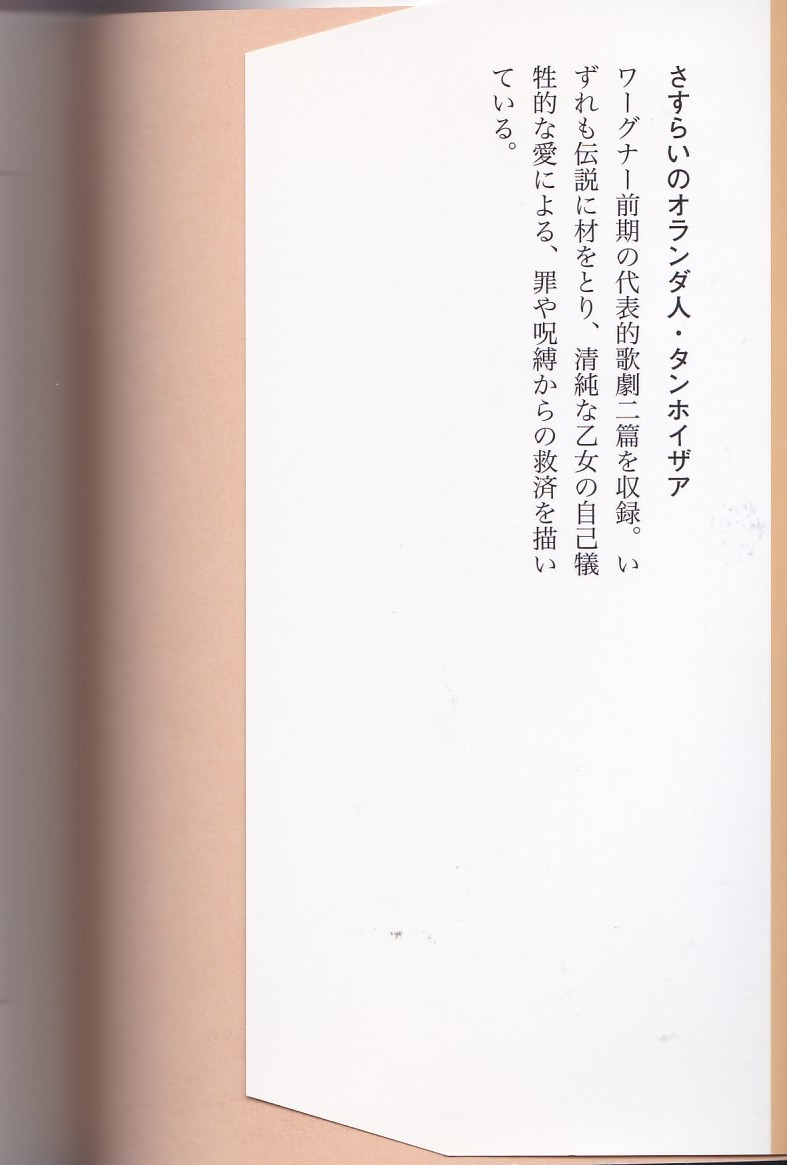 さすらいのオランダ人・タンホイザア
ワーグナー前期の代表的歌劇二篇を収録。い
ずれも伝説に材をとり、清純な乙女の自己犠
牲的な愛による、罪や呪縛からの救済を描い
ている。